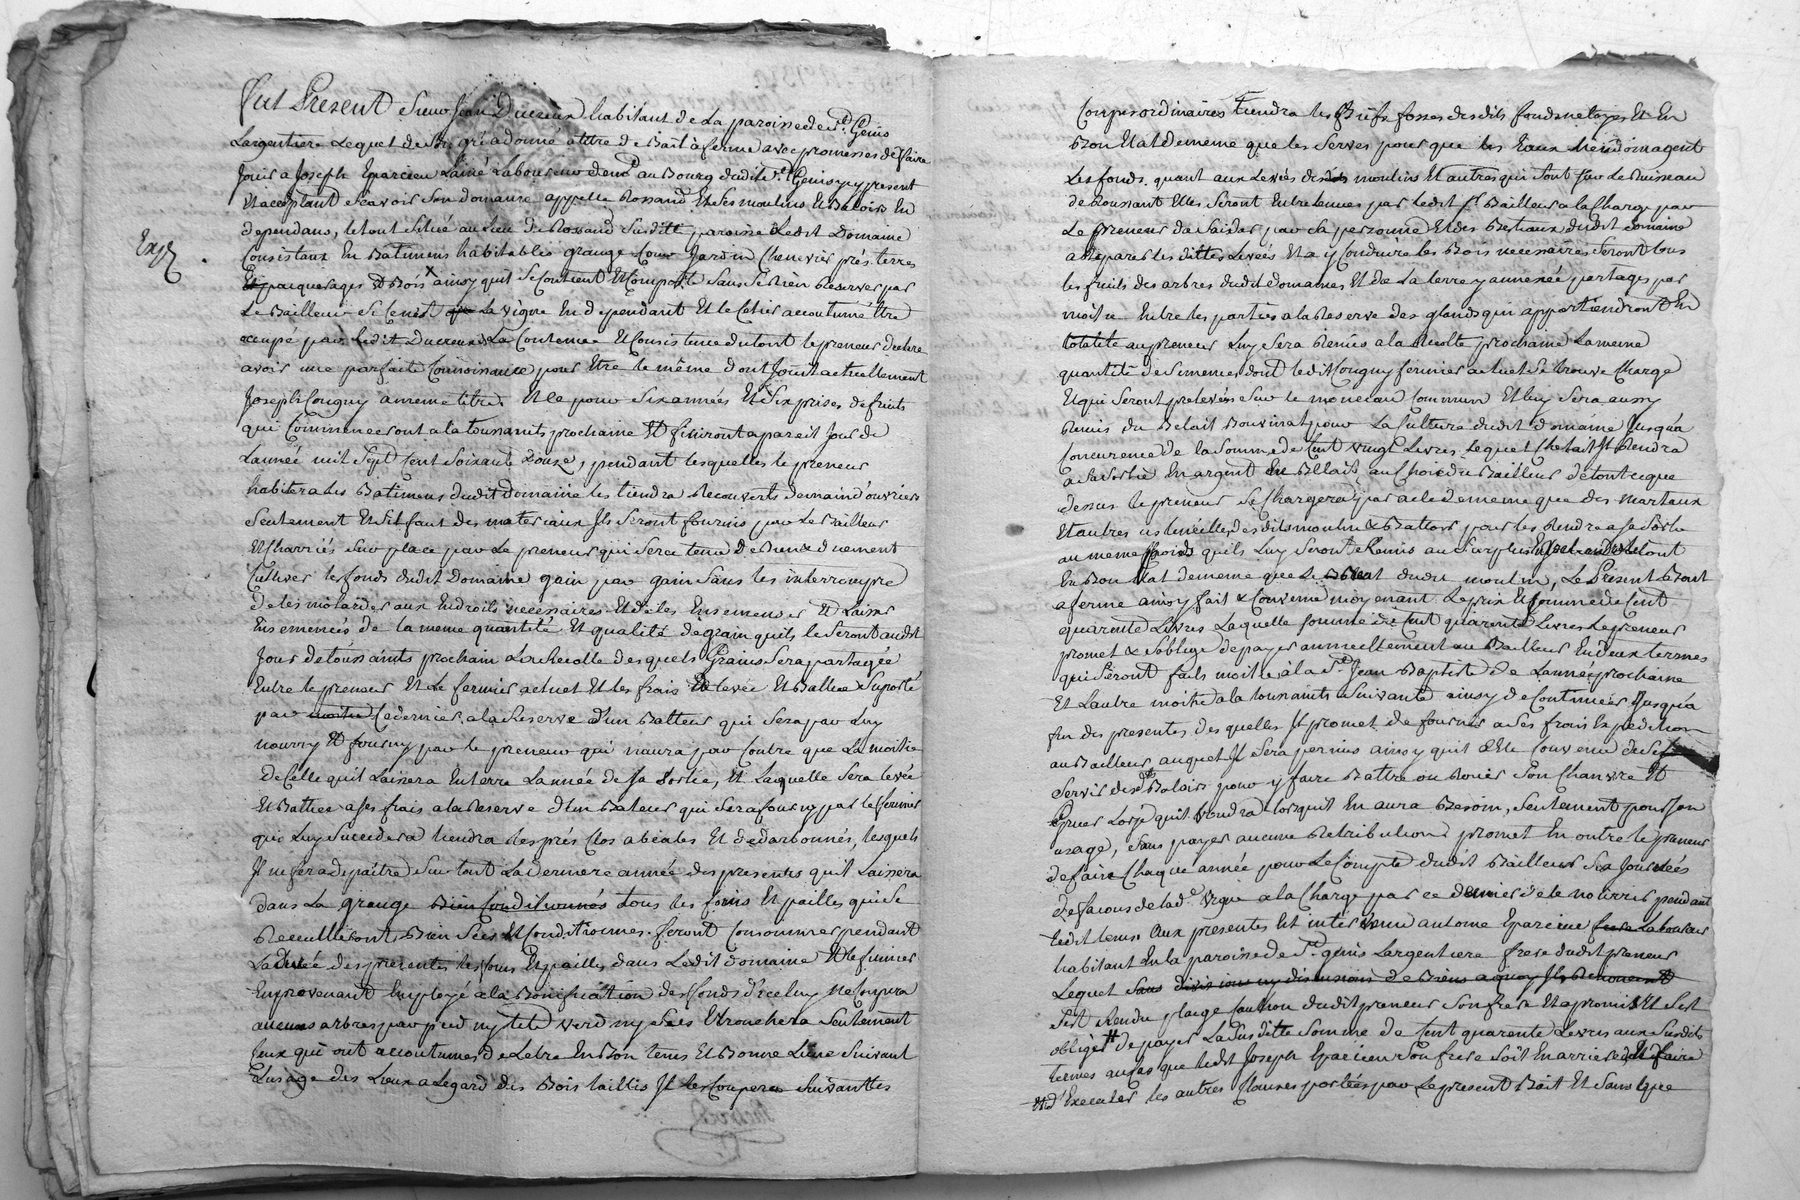 Fut Present Sieur Jean Ducreux habitant de La paroisse de St. Genis
Largentiere Lequel de Son gré a donné a titre de Bail à ferme avec promesses de faire
Jouir a Joseph Eparcieu Lainé Laboureur demt. au Bourg dudit St. Genis y present
Et acceptant Scavoir Son domaine appellé Rossand Et Ses moulins Et Batoirs En
dependans, le tout Situé au Lieu de Rossand Susditte paroisse Ledit Domaine
Expé.
Consistant En Batimens habitables grange Cour Jardin Chenevier prés terres
Et paquerages Et Bois ainsy quil Se Contient Et Comporte Sans Se Rien Reserver par
Le Bailleur Si Ce nest que La vigne En dependant Et le Celier accoutumé Etre
occupé par Ledit Ducreux La Contenue Et Consistence du tout le preneur declare
avoir une parfaite Connoissance pour Etre le même dont Jouit actuellement
Joseph Cougny a meme titre Et Ce pour Six années Et Six prises de fruits
qui Commenceront a la toussaints prochaine Et finiront a pareil Jour de
Lannée mil Sept Cent Soixante douze, pendant lesquelles le preneur
habitera les Batimens dudit Domaine les tiendra Recouverts de main d'ouvriers
Seulement Et Sil faut des materiaux Ils Seront fournis par Le Bailleur
Et Charriés Sur place par Le preneur qui Sera tenu De Bien & duement
Cultiver les fonds dudit Domaine gain par gain Sans les interrompre
de les molarder aux Endroits necessaires Et de les Ensemencer Et Laisser
Ensemencés de la meme quantité Et qualité de grain quils le Seront audit
Jour de toussaints prochain La Recolte desquels Grains Sera partagée
Entre le preneur Et Le fermier actuel Et les frais De levée Et Battue Suporté
par moitié Ce dernier, a la Reserve d'un Batteur qui Sera par Luy
nourry Et fourny par le preneur qui naura par Contre que La moitié
de Celle quil Laissera En terre Lannée de Sa Sortie, Et Laquelle Sera levée
Et Battue a Ses frais a la Reserve d'un Bateur qui Sera fourny par le fermier
qui Luy Succedera tiendra les prés Clos abealés Et dedarbonnés, lesquels
Il ne fera depaitre Sur tout La derniere année des presentes quil Laissera
dans La grange Bien Conditionnés tous les foins Et pailles qui Se
Recueilliront Bien Secs Et Conditionnés. feront Consommer pendant
La Durée des presentes les foins Et pailles dans Ledit domaine Et le fumier
En provenant Employé a la Bonification des fonds d'iceluy Ne Coupera
aucuns arbres par pied ny tete verd ny Secs Etronchera Seulement
Ceux qui ont accoutumés de Letre En Bon tems Et Bonne Lune Suivant
Lusage des Lieux a Legard des Bois taillis Il les Coupera Suivant les
Coupes ordinaires Tiendra les Biefs fosses desdits fonds netoyes Et En
Bon Etat de meme que les Serves pour que les Eaux N'endomagent
Les fonds. quant aux Levées desdits moulins Et autres qui Sont Sur Le Ruisseau
de Roussant Elles Seront Entretenues par Ledit Sr. Bailleur a la Charge par
Le preneur de S'aider par Sa personne Et des Bestiaux dudit domaine
a Reparer les dittes Levées Et a y Conduire les Bois necessaires Seront tous
les fruits des arbres dudit domaines Et de La terre y annexée partages par
moitié Entre les parties a la Reserve des glands qui appartiendront En
totalité au preneur Luy Sera Remis a la Recolte prochaine La meme
quantité de Semences dont ledit Cougny fermier actuel Se trouve Chargé
Et qui Seront prelevées Sur le monceau Commun Et luy Sera aussy
Remis du Betail Bouvinat pour La Culture dudit domaine Jusqu'a
Concurence de la Somme de Cent vingt Livres Lequel Chetail Il Rendra
a Sa Sortie En argent En Betail au Choix du Bailleur de tout ce que
dessus le preneur Se Chargera par acte de meme que des Martaux
Et autres ustencilles desdits moulin & Battoir pour les Rendre a Sa Sortie
au meme poids quils Luy Seront Remis au Surplus Entretiendra le tout
En Bon Etat de meme que Le dudit moulin, Le Present Bail
a ferme ainsy fait & Convenu moyenant Le prix Et Somme de Cent
quarente Livres Laquelle Somme de Cent quarente Livres Le preneur
promet & S'oblige de payer annuellement au Bailleur En deux termes
qui Seront faits moitié à la St. Jean Baptiste de Lannée prochaine
Et Lautre moitié a la toussaints Suivante ainsy de Continuer Jusqu'a
fin des presentes desquelles Il promet de fournir a Ses frais Expedition
au Bailleur auquel Il Sera permis ainsy quil a Eté Convenu de Se
Servir des Batoirs pour y faire Battre ou Rouer Son Chanvre Et
Gruer Lorge quil Voudra lorsquil En aura Besoin, Seulement pour Son
usage, Sans payer aucune Retribution promet En outre le preneur
de faire Chaque année pour Le Compte dudit Bailleur Six Journées
de facons de lad. vigne a la Charge par ce dernier de le nourrir pendant
ledit tems. Aux presentes Est intervenu antoine Eparcieu Laboureur
habitant En la paroisse de St. genis Largentiere frere dudit preneur
Lequel Sans division ny discussion de Biens a quoy Ils Renoncent
S'est Rendu plaige Caution dudit preneur Son frere Et a promis Et Sest
obligé de payer La Susditte Somme de Cent quarante Livres aux Susdits
termes au Cas que ledit Joseph Eparcieu Son frere Soit En arriere de le faire
Et d'Executer les autres Clauses portées par Le present Bail Et Sans que